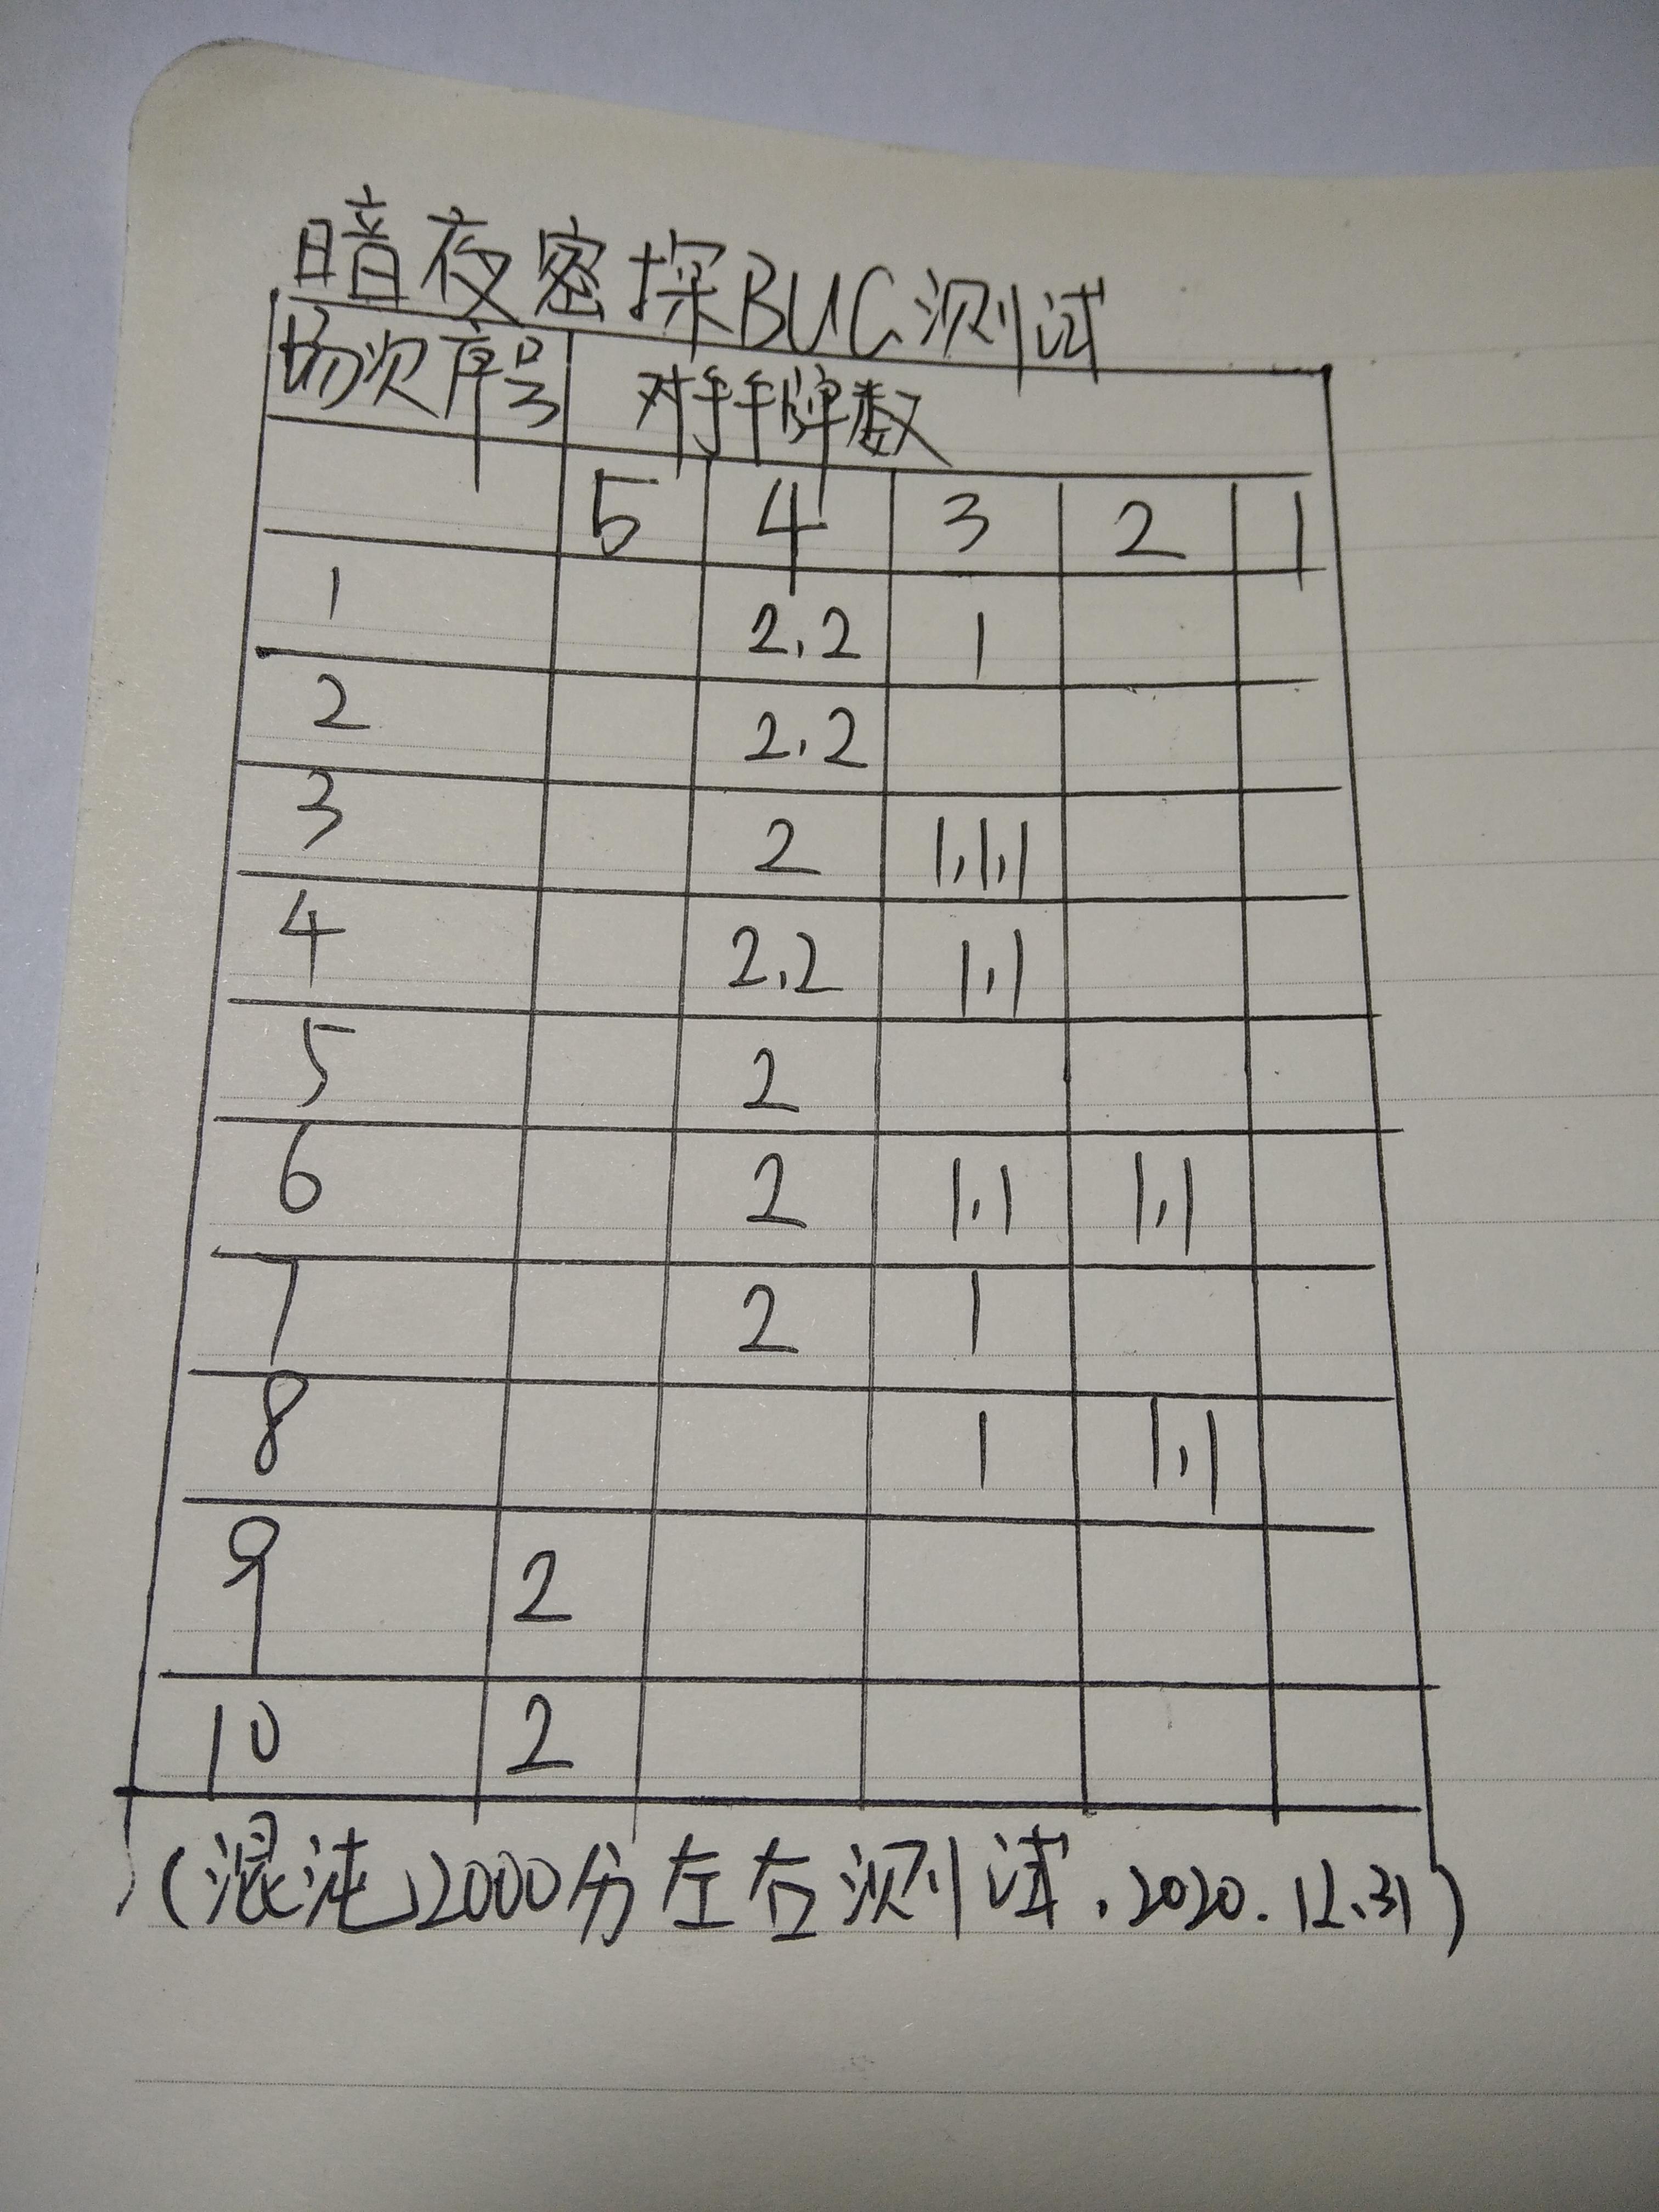 暗夜密探BUG测试
场次序号 对手手牌数
5 4 3 2 1
1 2.2 1
2 2.2
3 2 1.1.1
4 2.2 1.1
5 2
6 2 1.1 1.1
7 2 1
8 1 1.1
9 2
10 2
(混沌2000分左右测试.2020.12.31)